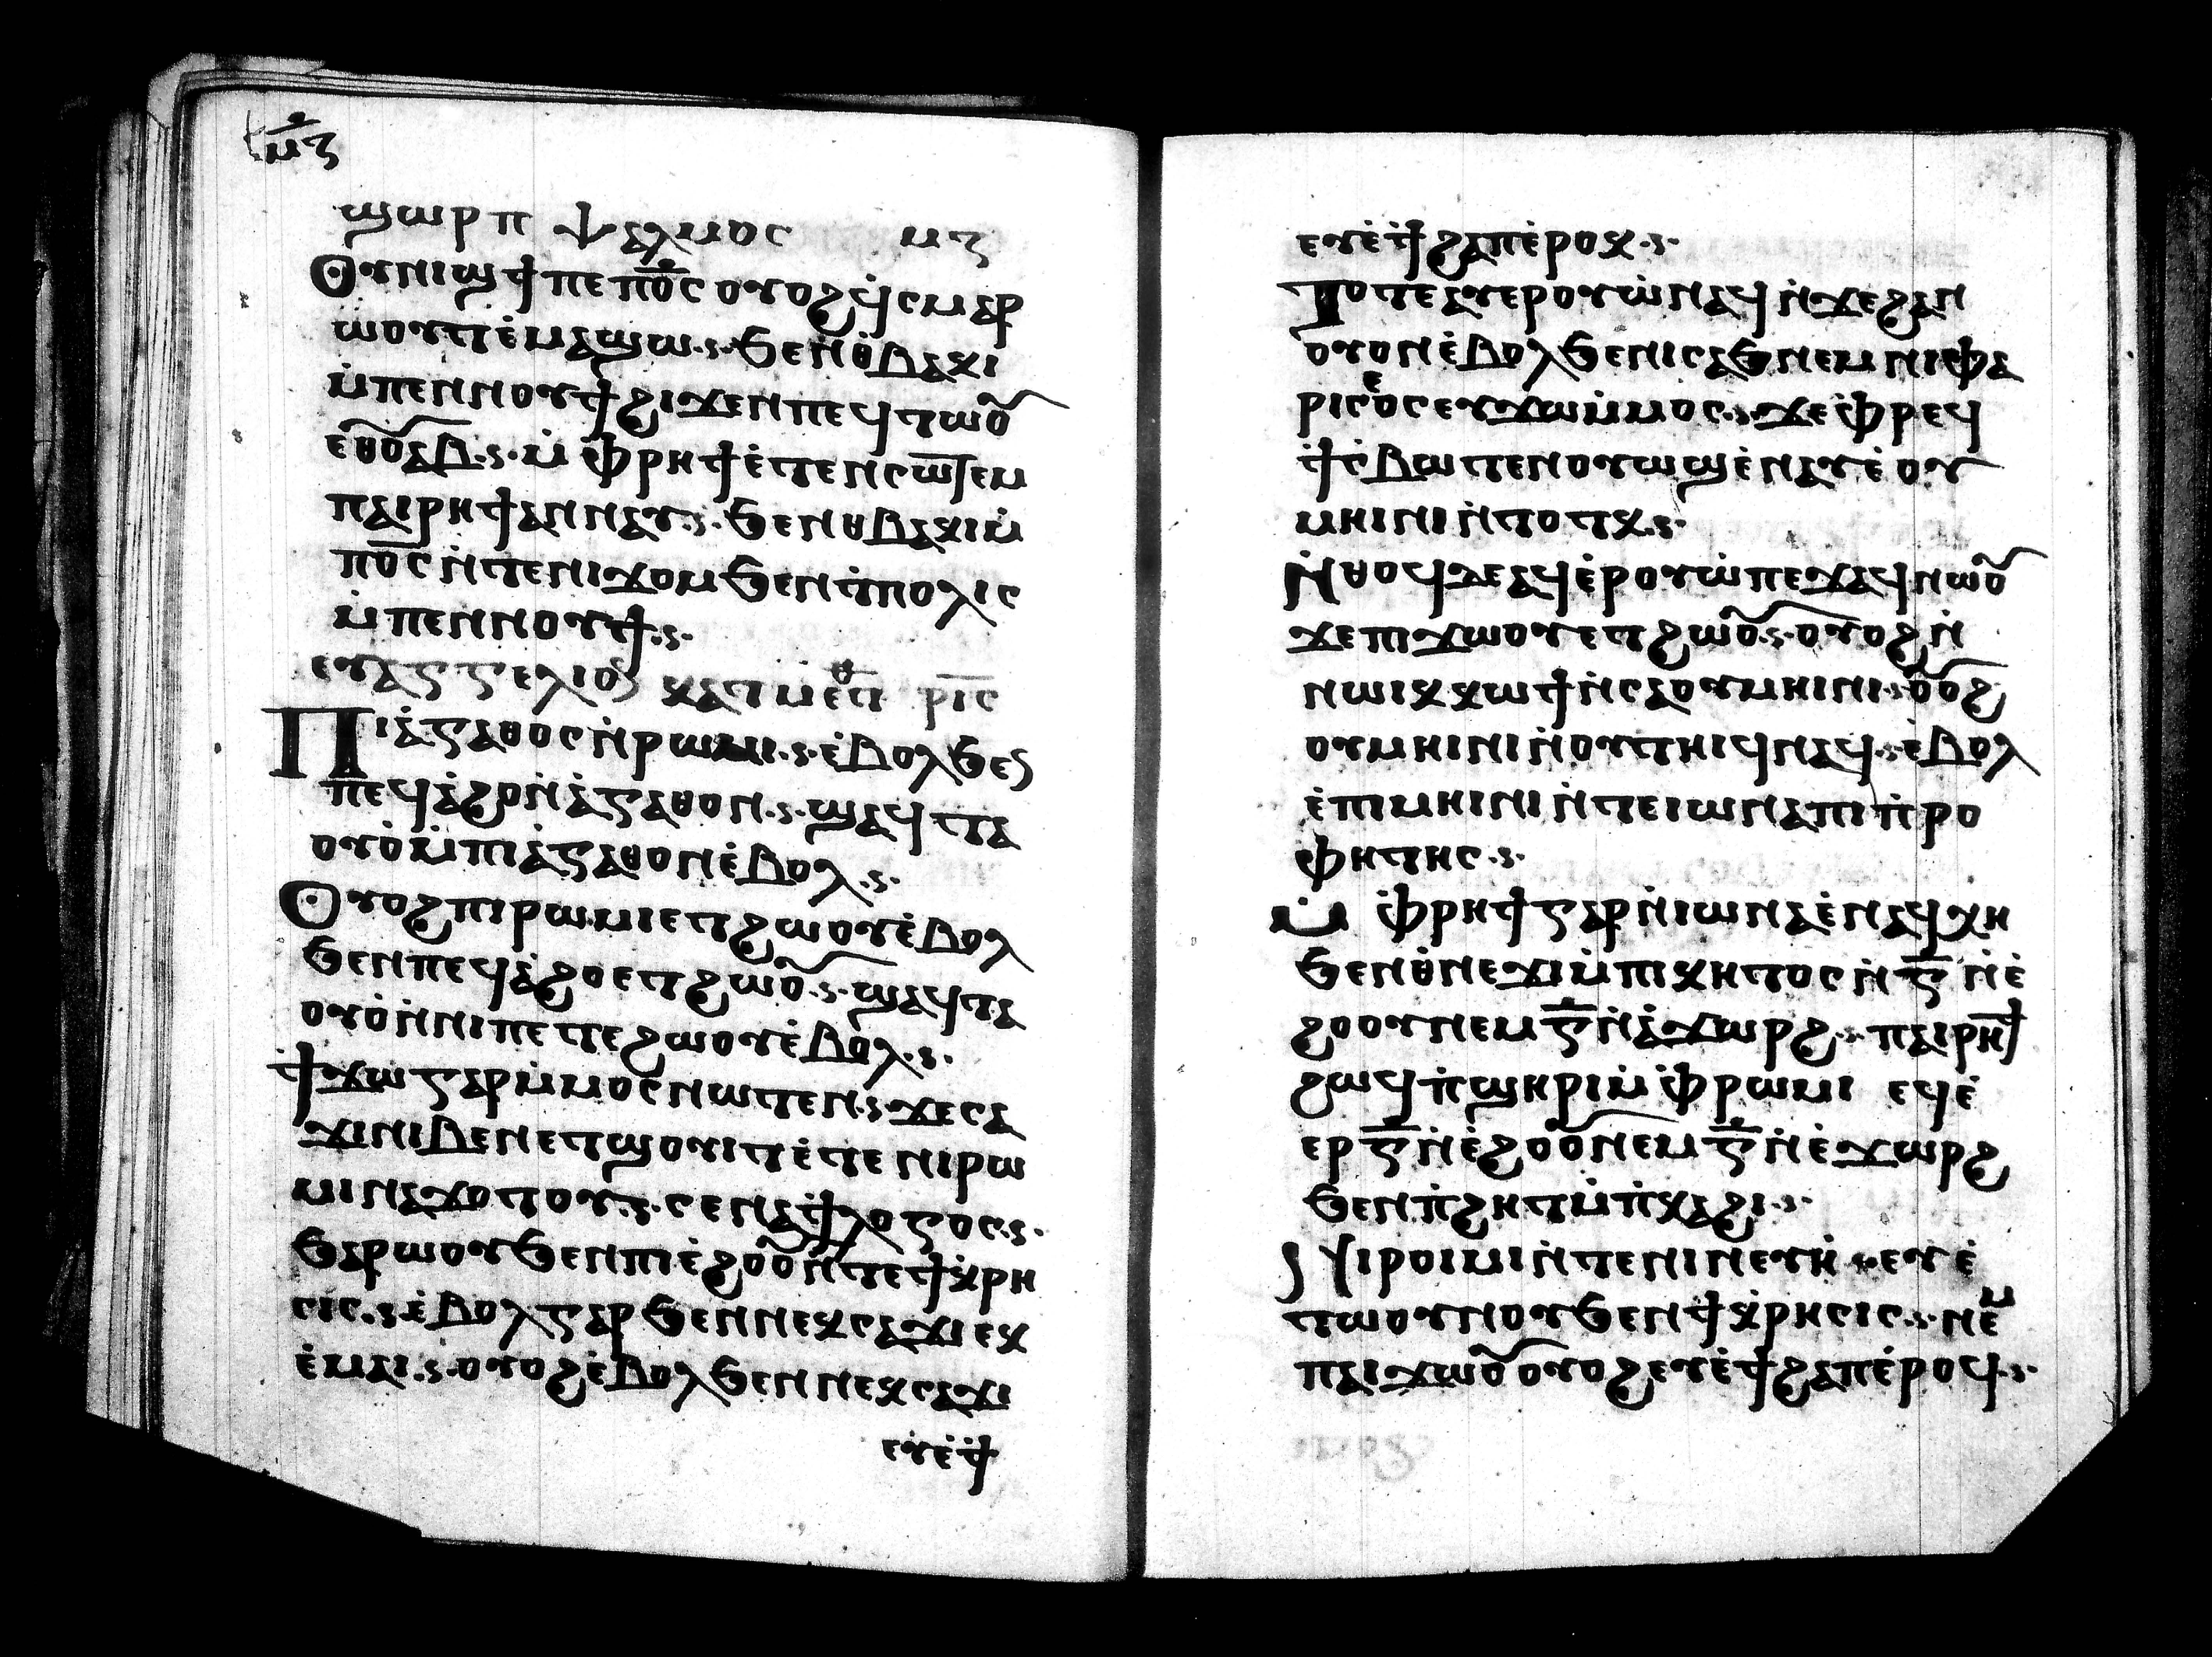 ⲙ̅ⲍ
ϣⲱⲣⲡ ⲯⲁⲗⲙⲟⲥ ⲙⲍ
Ⲟⲩⲛⲓϣϯ ⲡⲉ ⲡⲟ̅ⲥ̅ ⲟⲩⲟϩ ϥ̇ⲥⲙⲁⲣ
ⲱⲟⲩⲧ ⲉ̇ⲙⲁϣⲱ ϧⲉⲛ ⲑ̇ⲃⲁⲕⲓ
ⲙ̇ⲡⲉⲛⲛⲟⲩϯ ϩⲓϫⲉⲛ ⲡⲉϥⲧⲱⲟ̅
ⲉⲑⲟ̅ⲁⲃ ⲙ̇ⲫⲣⲏϯ ⲉ̇ⲧⲉⲛⲥⲱⲧⲉⲙ
ⲡⲁⲓⲣⲏϯ ⲁⲛⲛⲁⲩ ϧⲉⲛ ⲑⲃⲁⲕⲓ ⲙ̇
ⲡⲟ̅ⲥ̅ ⲛ̇ⲧⲉ ⲛⲓϫⲟⲙ ϧⲉⲛ ⲧ̇ⲡⲟⲗⲓⲥ
ⲙ̇ⲡⲉⲛⲛⲟⲩϯ
ⲉⲩⲁⲅⲅⲉⲗⲓⲟ ⲕⲁⲧ ⲙⲉⲧ̅ⲑ ⲣⲓ̅ⲥ
Ⲡⲓⲁ̇ⲅⲁⲑⲟⲥ ⲛ̇ⲣⲱⲙⲓ ⲉ̇ⲃⲟⲗ ϧⲉ
ⲡⲉϥⲁ̇ϩⲟ ⲛ̇ⲁ̇ⲅⲁⲑⲟⲛ ϣⲁϥⲧⲁ
ⲟⲩⲟ̇ ⲙ̇ⲡⲓⲁ̇ⲅⲁⲑⲟⲛ ⲉ̇ⲃⲟⲗ
Ⲟⲩⲟϩ ⲡⲓⲣⲱⲙⲓ ⲉⲧϩⲱⲟⲩ ⲉ̇ⲃⲟⲗ
ϧⲉⲛ ⲡⲉϥⲁ̇ϩⲟ ⲉⲧϩⲱⲟ̅ ϣⲁϥⲧⲁ
ⲟⲩⲟ̇ ⲛ̇ⲛⲓⲡⲉⲧⲉϩⲱⲟⲩ ⲉ̇ⲃⲟⲗ
Ϯ̇ϫⲱ ⲅⲁⲣ ⲙ̇ⲙⲟⲥ ⲛⲱⲧⲉⲛ ϫⲉ ⲥⲁ
ϫⲓ ⲛⲓⲃⲉⲛ ⲉⲧϣⲟⲩⲓⲧ ⲉ̇ⲧⲉ ⲛⲓⲣⲱ
ⲙⲓ ⲛⲁϫⲟⲧⲟⲩ ⲥⲉⲛⲁϯ ⲗⲟⲅⲟⲥ
ϧⲁⲣⲱⲟⲩ ϧⲉⲛ ⲡⲓⲉ̇ϩⲟⲟ̅ ⲛ̇ⲧⲉ ϯⲕ̇ⲣⲏ
ⲥⲓⲥ ⲉ̇ⲃⲟⲗ ⲅⲁⲣ ϧⲉⲛ ⲛⲉⲕⲥⲁϫⲓ ⲉⲕ
ⲉ̇ⲙⲁⲓ ⲟⲩⲟϩ ⲉ̇ⲃⲟⲗ ϧⲉⲛ ⲛⲉⲕⲥⲁϫⲓ
ⲉⲩⲉ̇ϯ̇
ⲉⲩⲉ̇ϯ̇ ϩⲁⲡ ⲉ̇ⲣⲟⲕ
Ⲧⲟⲧⲉ ⲁⲩⲉⲣⲟⲩⲱ̇ ⲛⲁϥ ⲛ̇ϫⲉ ϩⲁⲛ
ⲟⲩⲟⲛ ⲉ̇ⲃⲟⲗ ϧⲉ ⲛⲓⲥⲁϧ ⲛⲉⲙ ⲛⲓⲫⲁ
ⲣⲓⲥⲉⲟⲥ ⲉⲩϫⲱ ⲙ̇ⲙⲟⲥ ϫⲉ ⲫ̇ⲣⲉϥ
ϯ̇ⲥ̇ⲃⲱ ⲧⲉⲛⲟⲩⲱϣ ⲉ̇ⲛⲁⲩ ⲉ̇ⲟⲩ
ⲙⲏⲓⲛⲓ ⲛ̇ⲧⲟⲧⲕ
Ⲛ̇ⲑⲟϥ ⲇⲉ ⲁϥⲉ̇ⲣⲟⲩⲱ̇ ⲡⲉϫⲁϥ ⲛⲱⲟ̅
ϫⲉ ⲡⲓϫⲱⲟⲩ ⲉⲧϩⲱⲟ̅ ⲟⲩⲟϩ ⲛ̇
ⲛⲱⲓⲕ ⲕⲱϯ ⲛ̇ⲥⲁ ⲟⲩⲙⲏⲓⲛⲓ ⲟ̅ⲟϩ
ⲟⲩⲙⲏⲓⲛⲓ ⲛ̇ⲛⲟⲩⲧⲏⲓϥ ⲛⲁϥ ⲉ̇ⲃⲟⲗ
ⲉ̇ⲡⲓⲙⲏⲓⲛⲓ ⲛ̇ⲧⲉ ⲓⲱⲛⲁ ⲡⲓⲡ̇ⲣⲟ
ⲫⲏⲧⲏⲥ
Ⲙ̇ⲫ̇ⲣⲏϯ ⲅⲁⲣ ⲛ̇ⲓⲱⲛⲁ ⲉ̇ⲛⲁϥⲭⲏ
ϧⲉⲛ ⲑ̇ⲛⲉϫⲓ ⲙ̇ⲡⲓⲕⲏⲧⲟⲥ ⲛ̇ⲅ̅ ⲛ̇ⲉ̇
ϩⲟⲟⲩ ⲛⲉⲙ ⲅ̅ ⲛ̇ⲁ̇ϫⲱⲣϩ ⲡⲁⲓⲣⲏϯ
ϩⲱϥ ⲡ̇ϣⲏⲣⲓ ⲙ̇ⲫ̇ⲣⲱⲙⲓ ⲉϥⲉ̇
ⲉⲣ ⲅ̅ ⲛ̇ⲉ̇ϩⲟⲟ̅ ⲛⲉⲙ ⲅ̅ ⲛ̇ⲉ̇ϫⲱⲣϩ
ϧⲉⲛ ⲡ̇ϩⲏⲧ ⲙ̇ⲡ̇ⲕⲁϩⲓ
Ⲛⲓⲣⲱⲙⲓ ⲛ̇ⲧⲉ ⲛⲓⲛⲉⲩⲏ̇ ⲉⲩⲉ̇
ⲧⲱⲟⲩⲛⲟⲩ ϧⲉⲛ ϯⲕ̇ⲣⲏⲥⲓⲥ ⲛⲉⲙ
ⲡⲁⲓϫⲱⲟ̅ ⲟⲩⲟϩ ⲉⲩⲉ̇ϯ ϩⲁⲡ ⲉ̇ⲣⲟϥ